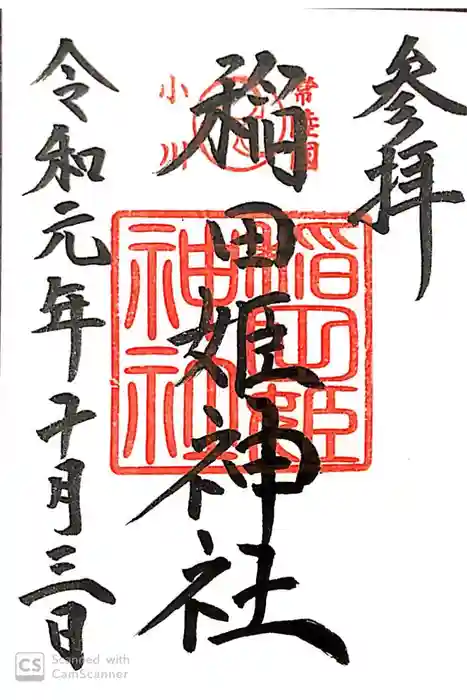 参拝
常陸國
小川
稲田姫神社
稲田姫
神社
令和元年十月三日
CS Scanned with
CamScanner